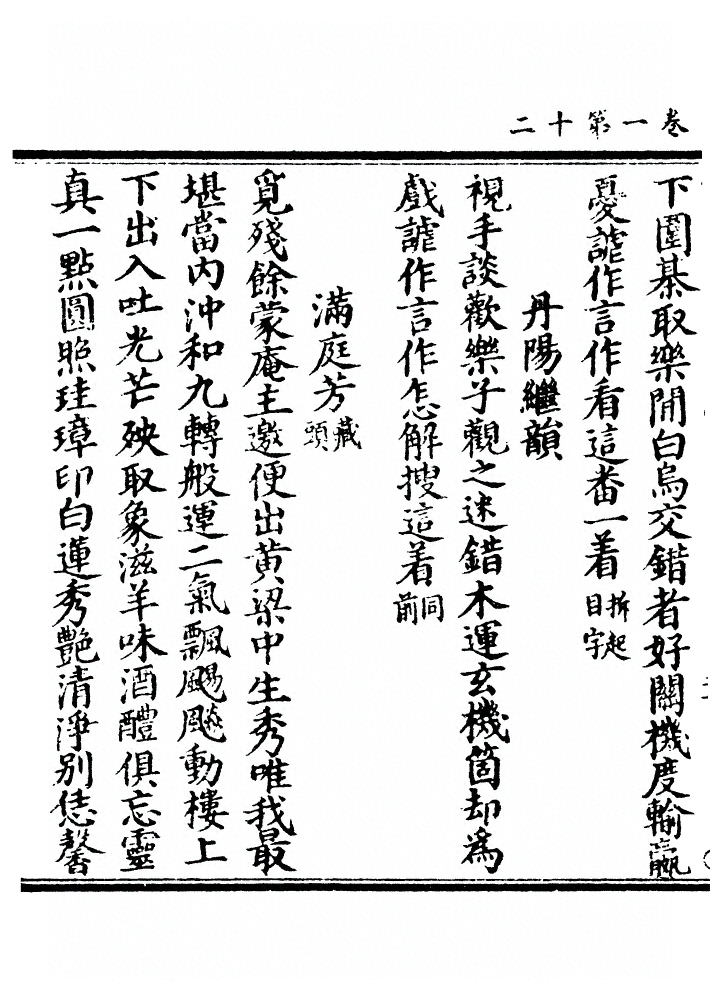 二十第一卷
下圍棊取樂閒白烏交錯者好關機度輸贏
憂謔作言作看這畨一着拆起目字
丹陽繼韻
視手談歡樂子觀之迷錯木運玄機箇却為
戲謔作言作怎解搜這着同前
滿庭芳藏頭
覓殘餘蒙庵主邀便出黄梁中生秀唯我最
堪當內沖和九轉般運二氣飄颺颷動樓上
下出入吐光芒殃取象滋羊味酒醴俱忘靈
真一點圓照珪璋印白蓮秀艷清淨別恁馨